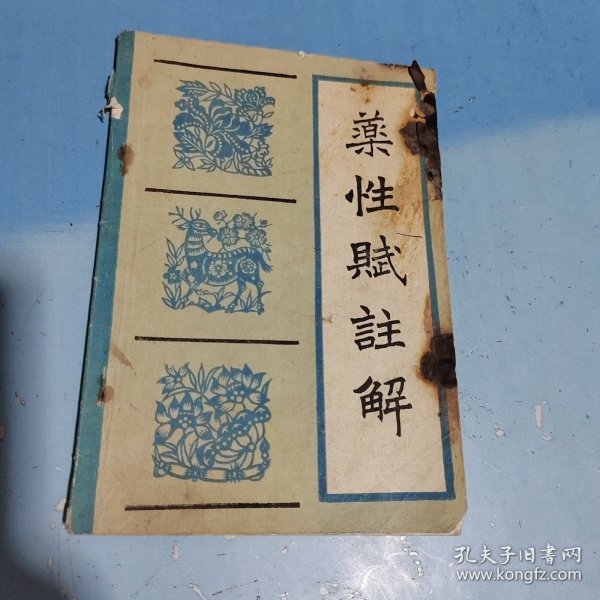 藥性賦註解
孔夫子旧書网
www.kongfz.com